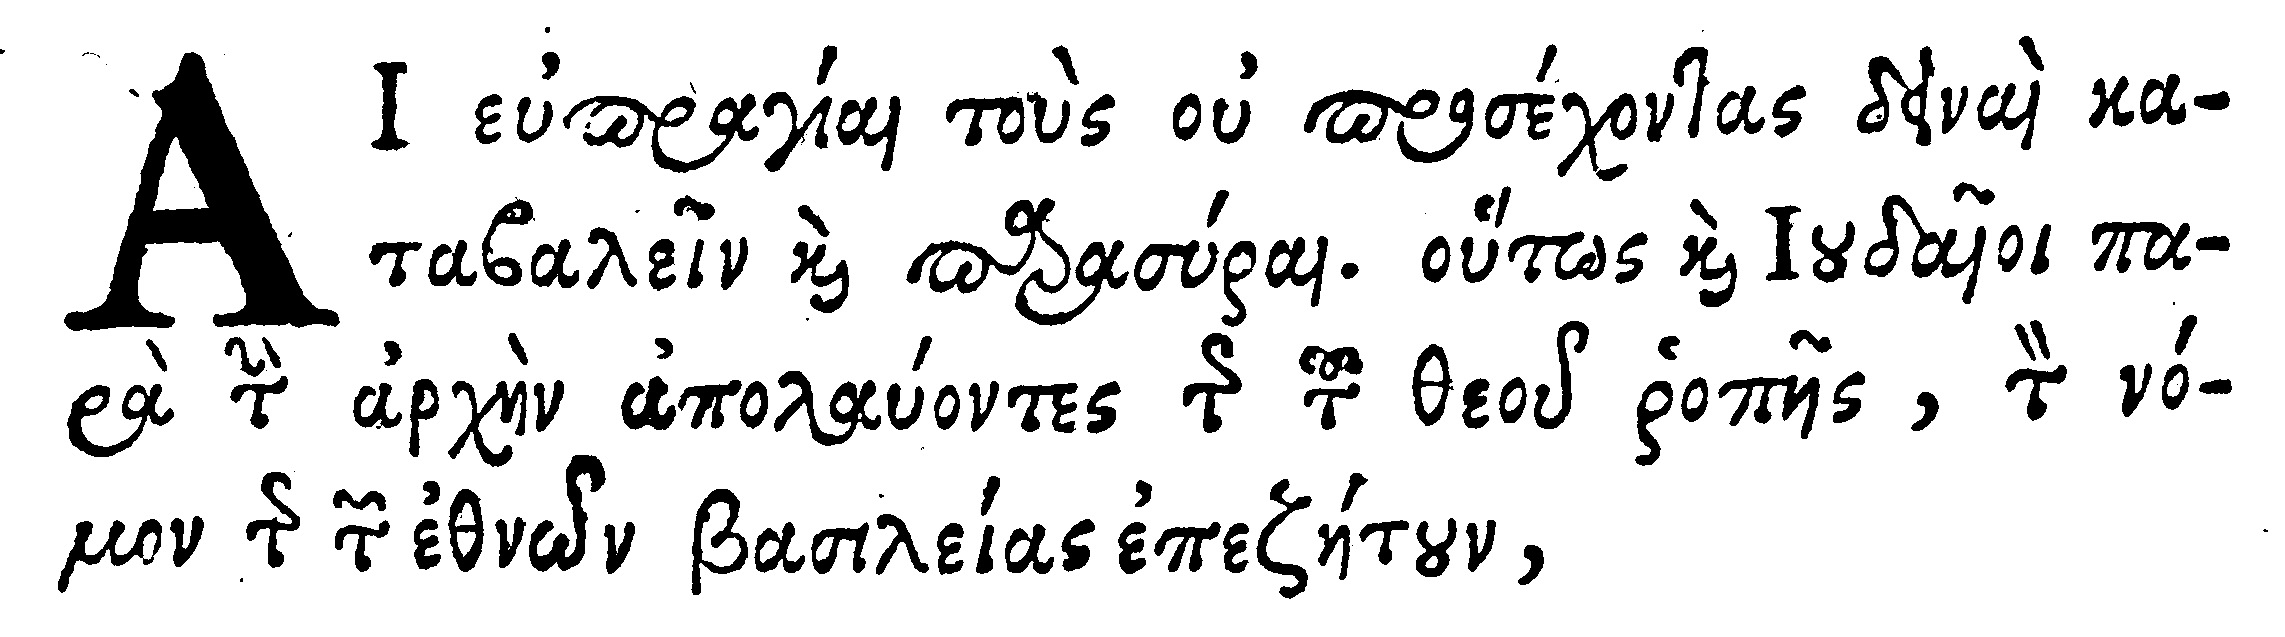 ΑΙ εὐπραγίαι τοὺς οὐ προσέχοντας δειναὶ κα-
ταβαλεῖν καὶ παρασύραι. οὕτως καὶ Ιουδαῖοι πα-
ρὰ τὴν ἀρχὴν ἀπολαύοντες τῆς τοῦ θεοῦ ῥοπῆς, τὸν νό-
μον τῆς τῶν ἐθνῶν βασιλείας ἐπεζήτουν,